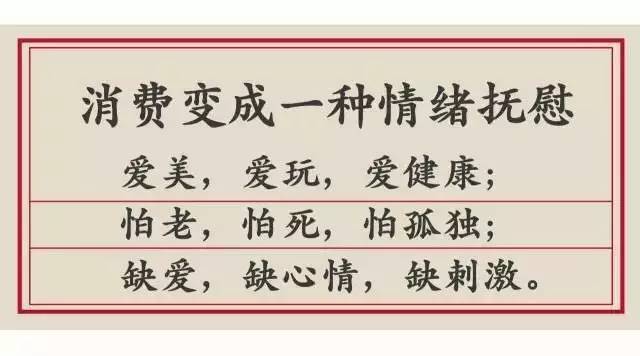 消费变成一种情绪抚慰
爱美，爱玩，爱健康；
怕老，怕死，怕孤独；
缺爱，缺心情，缺刺激。